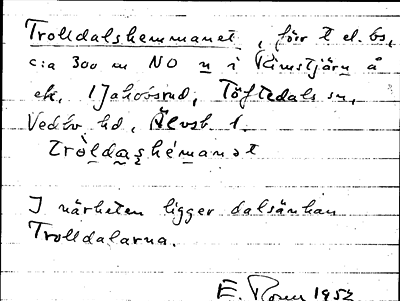 Trolldalshemmanet, förr t el. bs,
c:a 300 m NO n i Kimstjärn å
ek, 1 Jakobsrud, Töftedals sn,
Vedbo hd, Älvsb. l.
I närheten ligger dalsänkan
Trolldalarna.
E. 1952